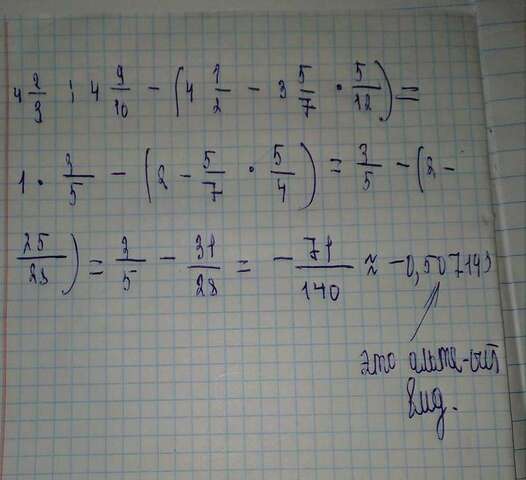 4 2/3 : 4 9/10 - (4 1/2 - 3 5/7 · 5/12) =
1 · 3/5 - (2 - 5/7 · 5/4) = 3/5 - (2 -
25/28) = 3/5 - 31/28 = - 71/140 ≈ -0,507143
это
вид.